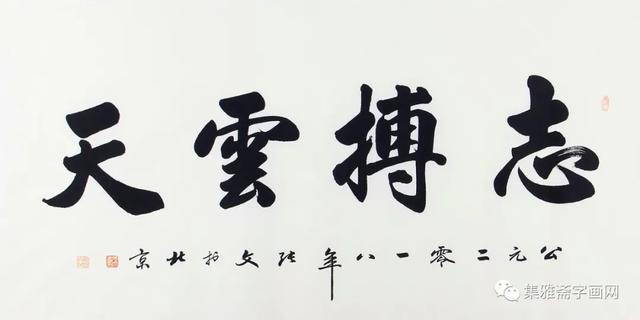 志搏雲天
公元二零一八年张文於北京
集雅斋字画网